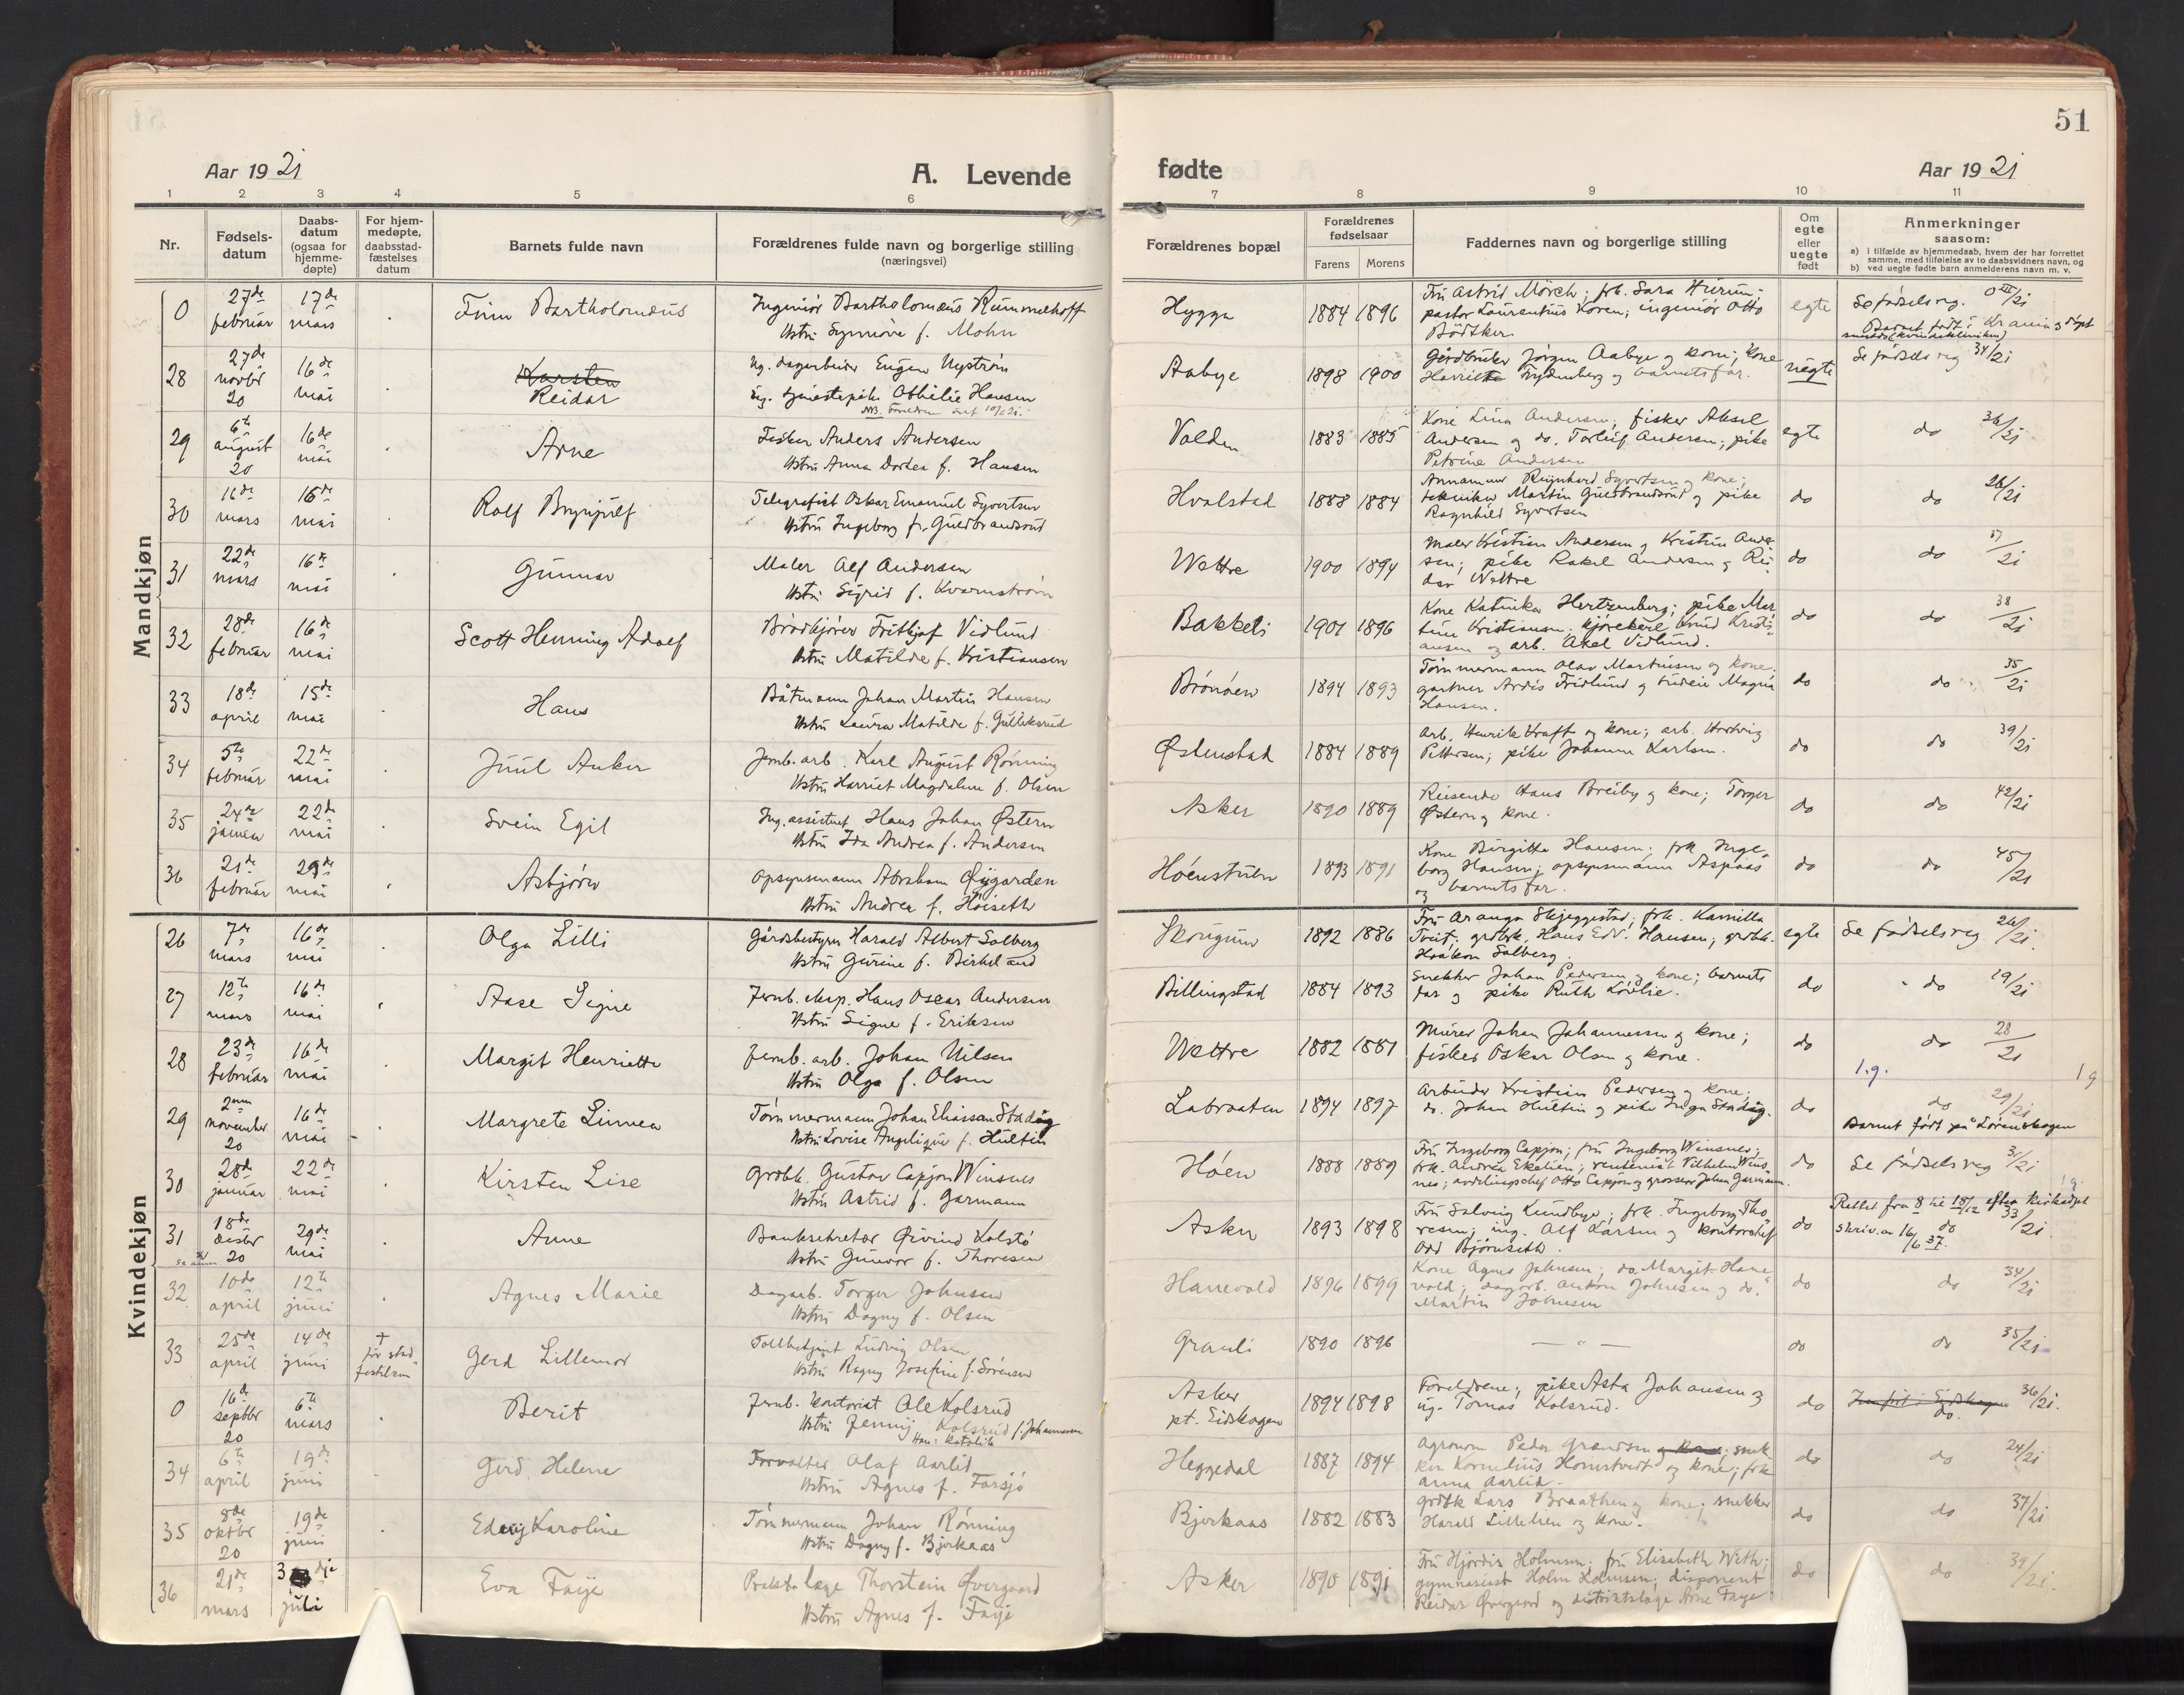 51
Aar 1921
A. Levende
fødte
Aar 1921
1 2 3 4 5 6 7 8 9 10 11
Nr.
Fødsels-
datum
Daabs-
datum
(ogsaa for
hjemme-
døpte)
For hjem-
medøpte,
daabsstad-
fæstelses
datum
Barnets fulde navn
Forældrenes fulde navn og borgerlige stilling
(næringsvei)
Forældrenes bopæl
Forældrenes
fødselsaar
Farens Morens
Faddernes navn og borgerlige stilling
Om
egte
eller
uegte
født
Anmerkninger
saasom:
a) i tilfælde av hjemmedaab, hvem der har forrettet
samme, med tilføielse av to daabsvidners navn, og
b) ved uegte fødte barn anmelderens navn m. v.
Mandkjøn
0 27de februar 17de mars Finn Bartholomeus
Ingeniör Bartholomeus Rummelhoff
Ustru Synnove f. Mohn
Hygga 1884 1896
Fru Astrid Mörch; frk. Sara Hurum;
pastor Laurentius Koren; ingeniör Otto
Bödtker
egte Se fødselsreg. 0/21
Barnet født i Kr.ania og døpt
28 27de novbr 20 16de mai Karsten
Reidar
Ug. dagarbeider Eugen Nystrøm
Ug. tjenestepike Othilie Hansen
Aabye 1898 1900
Gårdbruker Jørgen Aabye og kone; kone
Harriette Frydenberg og barnets far.
uegte Se fødselsreg 34/21
29 6te august 20 16de mai Arne
Fisker Anders Andersen
Ustru Anna Dortea f. Hansen
Valden 1883 1885
Kone Lina Andersen; fisker Aksel
Andersen og do. Torleif Andersen; pike
Petrine Andersen
egte do 36/21
30 16de mars 16de mai Rolf Brynjulf
Telegrafist Oskar Emanuel Syvertsen
Ustru Ingeborg f. Guldbrandsrud
Hvalstad 1888 1884
Reinhard Syvertsen og kone;
tekniker Martin Guldbrandsrud og pike
Ragnhild Syvertsen
do do 28/21
31 22de mars 16de mai Gunnar
Maler Alf Andersen
Ustru Sigrid f. Kvarnstrøm
Wettre 1900 1894
Maler Kristian Andersen og Kristine Ander-
sen; pike Rakel Andersen og Rei-
dar Wettre
do do 21
32 28de februar 16de mai Scott Henning Adolf
Brødkjører Fritjof Vidlund
Ustru Matilde f. Kristiansen
Bakkeli 1901 1896
Kone Katinka Hertzenberg; pike Mar-
tine Kristiansen; kjørekarl Knud Kristi-
ansen og arb. Aksel Vidlund.
do do 38/21
33 18de april 15de mai Hans
Båtmann Johan Martin Hansen
Ustru Laura Matilde f. Gulliksrud
Brönöen 1894 1893
Tömmermann Olav Martinsen og kone;
gartner Ardis Fridlund og budeie Magna
Hansen.
do do 35/21
34 5te februar 22de mai Juul Anker
Jernb. arb. Karl August Rønning
Ustru Harriet Magdalene f. Olsen
Østenstad 1884 1889
Arb. Henrik Kraft og kone; arb. Hartvig
Pettersen; pike Johanne Karlsen.
do do 39/21
35 24de januar 22de mai Svein Egil
Ing. assistent Hans Johan Østern
Ustru Ida Andrea f. Andersen
Asker 1890 1889
Reisende Hans Breiby og kone; Torger
Østern og kone.
do do 42/21
36 21de februar 29de mai Asbjørn
Opsynsmann Abraham Øygarden
Ustru Andrea f. Høiseth
Høenstubn 1893 1891
Kone Birgitte Hansen; frk. Inge-
borg Hansen; opsynsmann Aspaas
og barnets far.
do do 45/21
Kvindekjøn
26 7de mars 16de mai Olga Lilli
Gårdsbestyrer Harald Albert Solberg
Ustru Gurine f. Birkeland
Skougum 1892 1886
Fru Aranga Skjeggestad; frk. Kamilla
Tveit; grdbrk. Hans Edv. Hansen; grdbk.
Haakon Solberg.
egte Se fødselsreg 26/21.
27 12te mars 16de mai Aase Signe
Jernb. eksp. Hans Oscar Andersen
Ustru Signe f. Eriksen
Billingstad 1884 1893
Snekker Johan Pedersen og kone; barnets
far og pike Ruth Lövlie.
do do 19/21
28 23de februar 16de mai Margit Henriette
Jernb. arb. Johan Nilsen
Ustru Olga f. Olsen
Wettre 1882 1881
Murer Johan Johannessen og kone;
fisker Oskar Olsen og kone.
do do 28/21
1.g. 1g
29 2nen november 20 16de mai Margrete Linnea
Tömmermann Johan Eliassen Stadig
Ustru Lovise Angelique f. Hultin
Labraaten 1894 1897
Arbeider Kristian Pedersen og kone;
do. Johan Hultin og pike Inga Stadig.
do do 29/21
Barnet født på Lörenskogen
30 28de januar 22de mai Kirsten Lise
Grdbk. Gustav Capjon Winsnes
Ustru Astrid f. Garmann
Høen 1888 1889
Fru Ingeborg Capjon; fru Ingeborg Winsnes;
frk. Andrea Ekelien; rentenist Vilhelm Wins-
nes; avdelingschef Otto Capjon og grosserer Johan Garmann.
do Se fødselsreg 3/21
31 18de desbr 20 29de mai Anne
Banksekretær Øivind Kolstö
Ustru Gunvor f. Thoresen
Asker 1893 1898
Fru Solveig Kundbye; frk. Ingeborg Tho-
resen; ing. Alf Larsen og kontorchef
Odd Bjørnseth.
do Rettet fra 8 til 18/12 efter kirkedept
skriv. av 16/6 37. do 33/21.
32 10de april 12te juni Agnes Marie
Dagarb. Torger Johnsen
Ustru Dagny f. Olsen
Hanevold 1896 1899
Kone Agnes Johnsen; do. Margit Hane-
vold; dagarb. Anton Johnsen og do.
Martin Johnsen
do do 34/21
33 25de april 14de juni † før stad-
festelsen
Gerd Lillemor
Tollbetjent Ludvig Olsen
Ustru Ragny Josefine f. Sörensen
Grauli 1890 1896
— " —
do do 35/21
0 16de septbr 20 6te mars Berit
Jernb. kontorist Ole Kolsrud
Ustru Jenny Kolsrud f. Johannessen
Han: katolik
Asker
pt. Eidskogen 1894 1898
Foreldrene; pike Asta Johansen og
ug. Tomas Kolsrud.
do do. 36/21.
34 6te april 19de juni Gerd Helene
Forvalter Olaf Aarlid
Ustru Agnes f. Farsjö
Heggedal 1887 1894
Agronom Peder Grandsen og kone; snek-
ker Kornelius Homstvedt og kone; frk
Anna Aarlid.
do do 24/21
35 8de oktbr 20 19de juni Edny Karoline
Tömmermann Johan Rönning
Ustru Dagny f. Bjerkaas
Bjerkaas 1882 1883
Grdbk Lars Braathen og kone; snekker
Harald Lillelien og kone.
do do 37/21
36 21de mars 3dje juli Eva Faye
Prakt. læge Thorstein Øvergaard
Ustru Agnes f. Faye
Asker 1890 1891
Fru Hjördis Holmsen; fru Elisabeth Weth;
gymnasiast Holm Holmsen; disponent
Reidar Øvergaard og distriktslæge Arne Faye
do do 39/21.